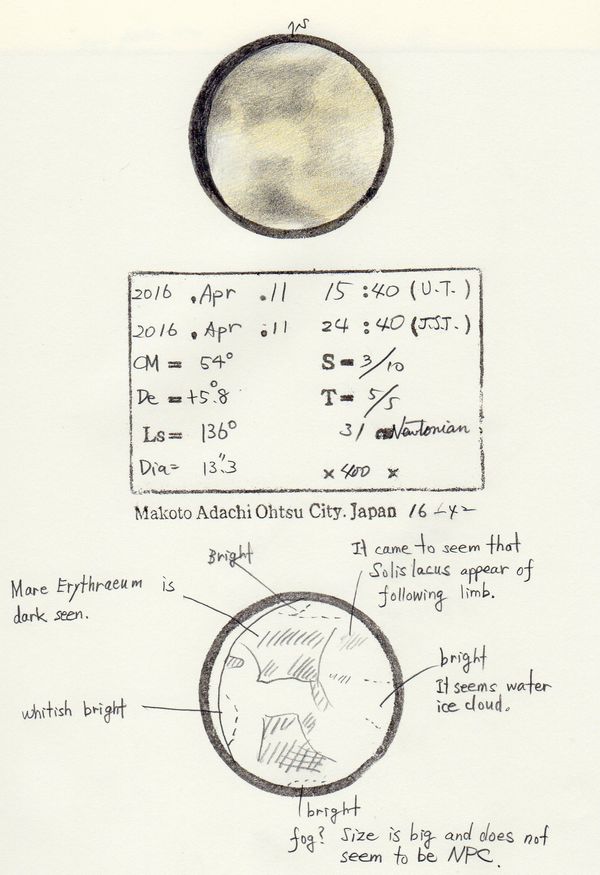 2016 . Apr . 11 15 : 40 (U.T.)
2016 . Apr . 11 24 : 40 (J.S.T.)
CM = 54° S = 3/10
De = +5°.8 T = 5/5
Ls = 136° 31 Newtonian
Dia = 13".3 × 400 ×
Makoto Adachi Ohtsu City. Japan 16-42
Bright
It came to seem that
Solis lacus appear of
following limb.
Mare Erythraeum is
dark seen.
bright
It seems water
ice cloud.
whitish bright
bright
fog? Size is big and does not
seem to be NPC.